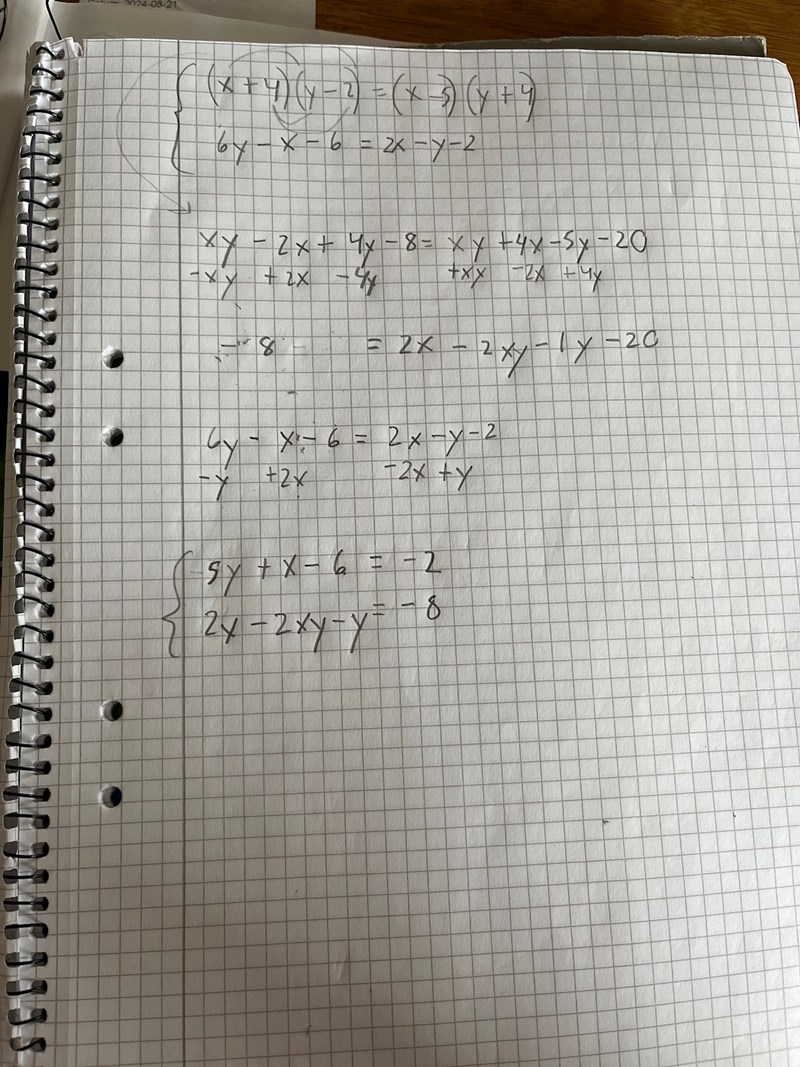 2024-08-21
(x+4)(y-2) = (x-5)(y+4)
6y - x - 6 = 2x - y - 2
xy - 2x + 4y - 8 = xy + 4x - 5y - 20
-xy +2x -4y +xy -2x +4y
- 8 = 2x - 2xy - 1y - 20
6y - x - 6 = 2x - y - 2
-y +2x -2x +y
5y + x - 6 = -2
2x - 2xy - y = -8